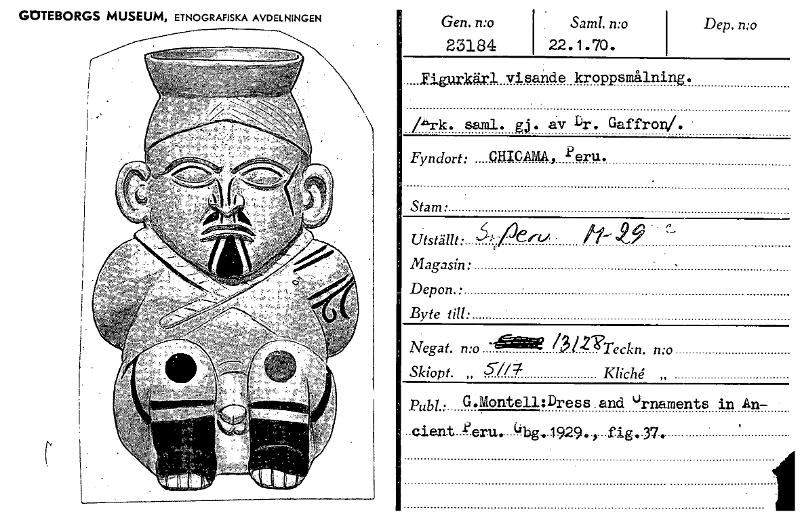 GÖTEBORGS MUSEUM, ETNOGRAFISKA AVDELNINGEN
Gen. n:o Saml. n:o Dep. n:o
23184 22.1.70.
Figurkärl visande kroppsmålning.
/Ark. saml. gj. av Dr. Gaffron/.
Fyndort: CHICAMA, Peru.
Stam:
Utställt: S. Peru M-29
Magasin:
Depon.:
Byte till:
Negat. n:o 13128 Teckn. n:o
Skiopt. „ 5117 Kliché „
Publ.: G.Montell:Dress and Ornaments in An-
cient Peru. Gbg.1929., fig.37.